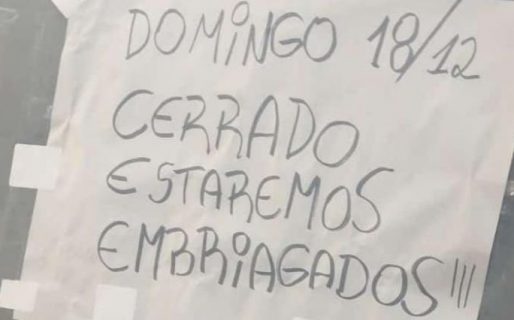 DOMINGO 18/12
CERRADO
ESTAREMOS
EMBRIAGADOS!!!